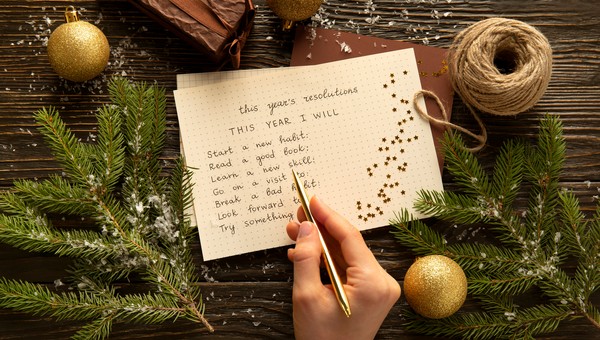 this year's resolutions
THIS YEAR I WILL
Start a new habit:
Read a good book:
Learn a new skill:
Go on a visit to:
Break a bad
Look forward
Try something